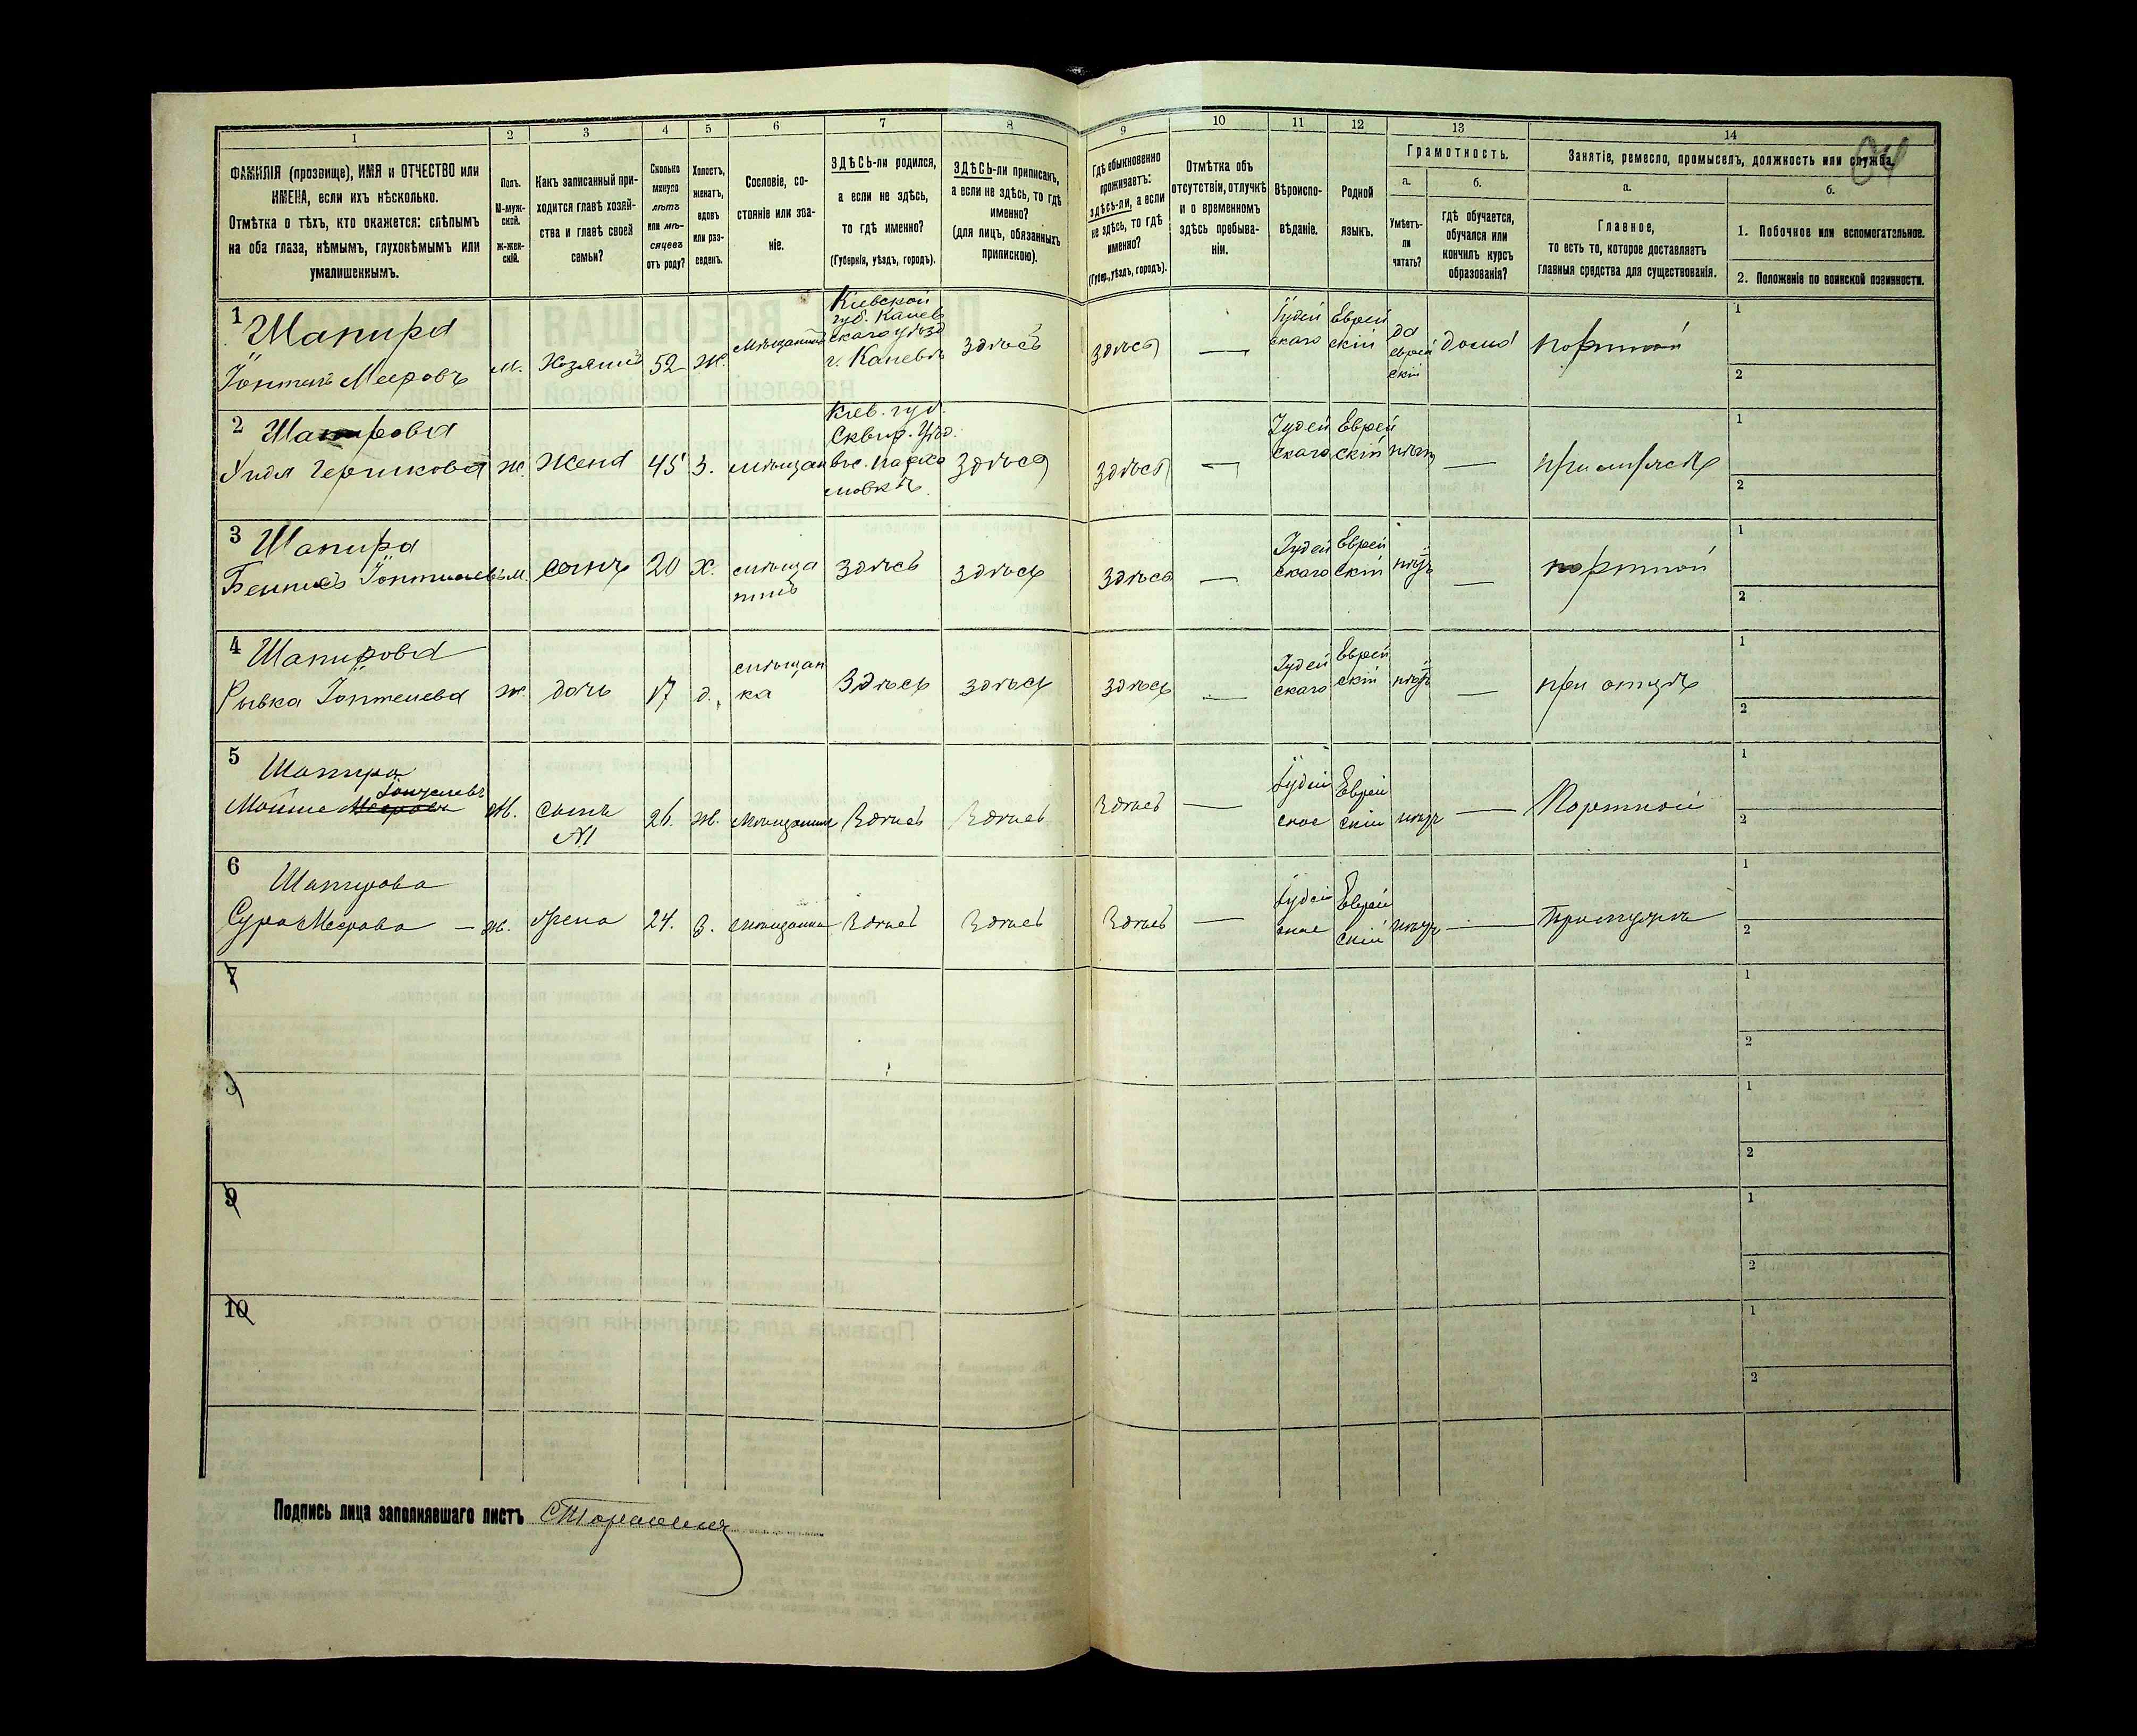 1 2 3 4 5 6 7 8 9 10 11 12 13 14
ФАМИЛІЯ (прозвище), ИМЯ и ОТЧЕСТВО или
ИМЕНА, если ихъ нѣсколько.
Отмѣтка о тѣхъ, кто окажется: слѣпымъ
на оба глаза, нѣмымъ, глухонѣмымъ или
умалишеннымъ.
Полъ.
М-муж-
ской.
Ж-жен-
скій.
Какъ записанный при-
ходится главѣ хозяй-
ства и главѣ своей
семьи?
Сколько
минуло
лѣтъ
или мѣ-
сяцевъ
отъ роду?
Холостъ,
женатъ,
вдовъ
или раз-
веденъ.
Сословіе, со-
стояніе или зва-
ніе.
ЗДѢСЬ-ли родился,
а если не здѣсь,
то гдѣ именно?
(Губернія, уѣздъ, городъ).
ЗДѢСЬ-ли приписанъ,
а если не здѣсь, то гдѣ
именно?
(для лицъ, обязанныхъ
припискою).
Гдѣ обыкновенно
проживаетъ:
здѣсь-ли, а если
не здѣсь, то гдѣ
именно?
(Губер., уѣздъ, городъ).
Отмѣтка объ
отсутствіи, отлучкѣ
и о временномъ
здѣсь пребыва-
ніи.
Вѣроиспо-
вѣданіе.
Родной
языкъ.
Грамотность.
а.
Умѣетъ-
ли
читать?
б.
гдѣ обучается,
обучался или
кончилъ курсъ
образованія?
Занятіе, ремесло, промыселъ, должность или служба.
а.
Главное,
то есть то, которое доставляетъ
главныя средства для существованія.
б.
1. Побочное или вспомогательное.
2. Положеніе по воинской повинности.
1 Шапира
Мееровъ
м. Хозяинъ 52 ж. Мѣщанинъ
Кіевской
губ. Канев
скаго уѣзд
г. Каневъ
здѣсь здѣсь —
Іудей
скаго
Еврей
скій
да
еврей
скій
дома портной
1
2
2 Шапирова
Гершкова ж. жена 45 З. мѣщан
Кіев. губ.
Сквир. Уѣзд.
здѣсь здѣсь —
Іудей
скаго
Еврей
скій
нѣтъ —
1
2
3 Шапира
м. сынъ 20 Х.
мѣща
нинъ
здѣсь здѣсь здѣсь —
Іудей
скаго
Еврей
скій
нѣтъ — портной
1
2
4 Шапирова
Рывка Іонтелева ж. дочь 17 д.
мѣщан
ка
здѣсь здѣсь здѣсь —
Іудей
скаго
Еврей
скій
нѣтъ — при отцѣ
1
2
5 Шапира
Мойше
М. сынъ
№1
26. ж. Мѣщанинъ Здѣсь Здѣсь Здѣсь —
Іудей
ское
Еврей
скій
нѣтъ — Портной
1
2
6 Шапирова
Сура Меерова — ж. жена 24. З. Мѣщанка Здѣсь Здѣсь Здѣсь —
Іудей
ское
Еврей
скій
нѣтъ — При мужѣ
1
2
7 1
2
8 1
2
9 1
2
10 1
2
Подпись лица заполнявшаго листъ